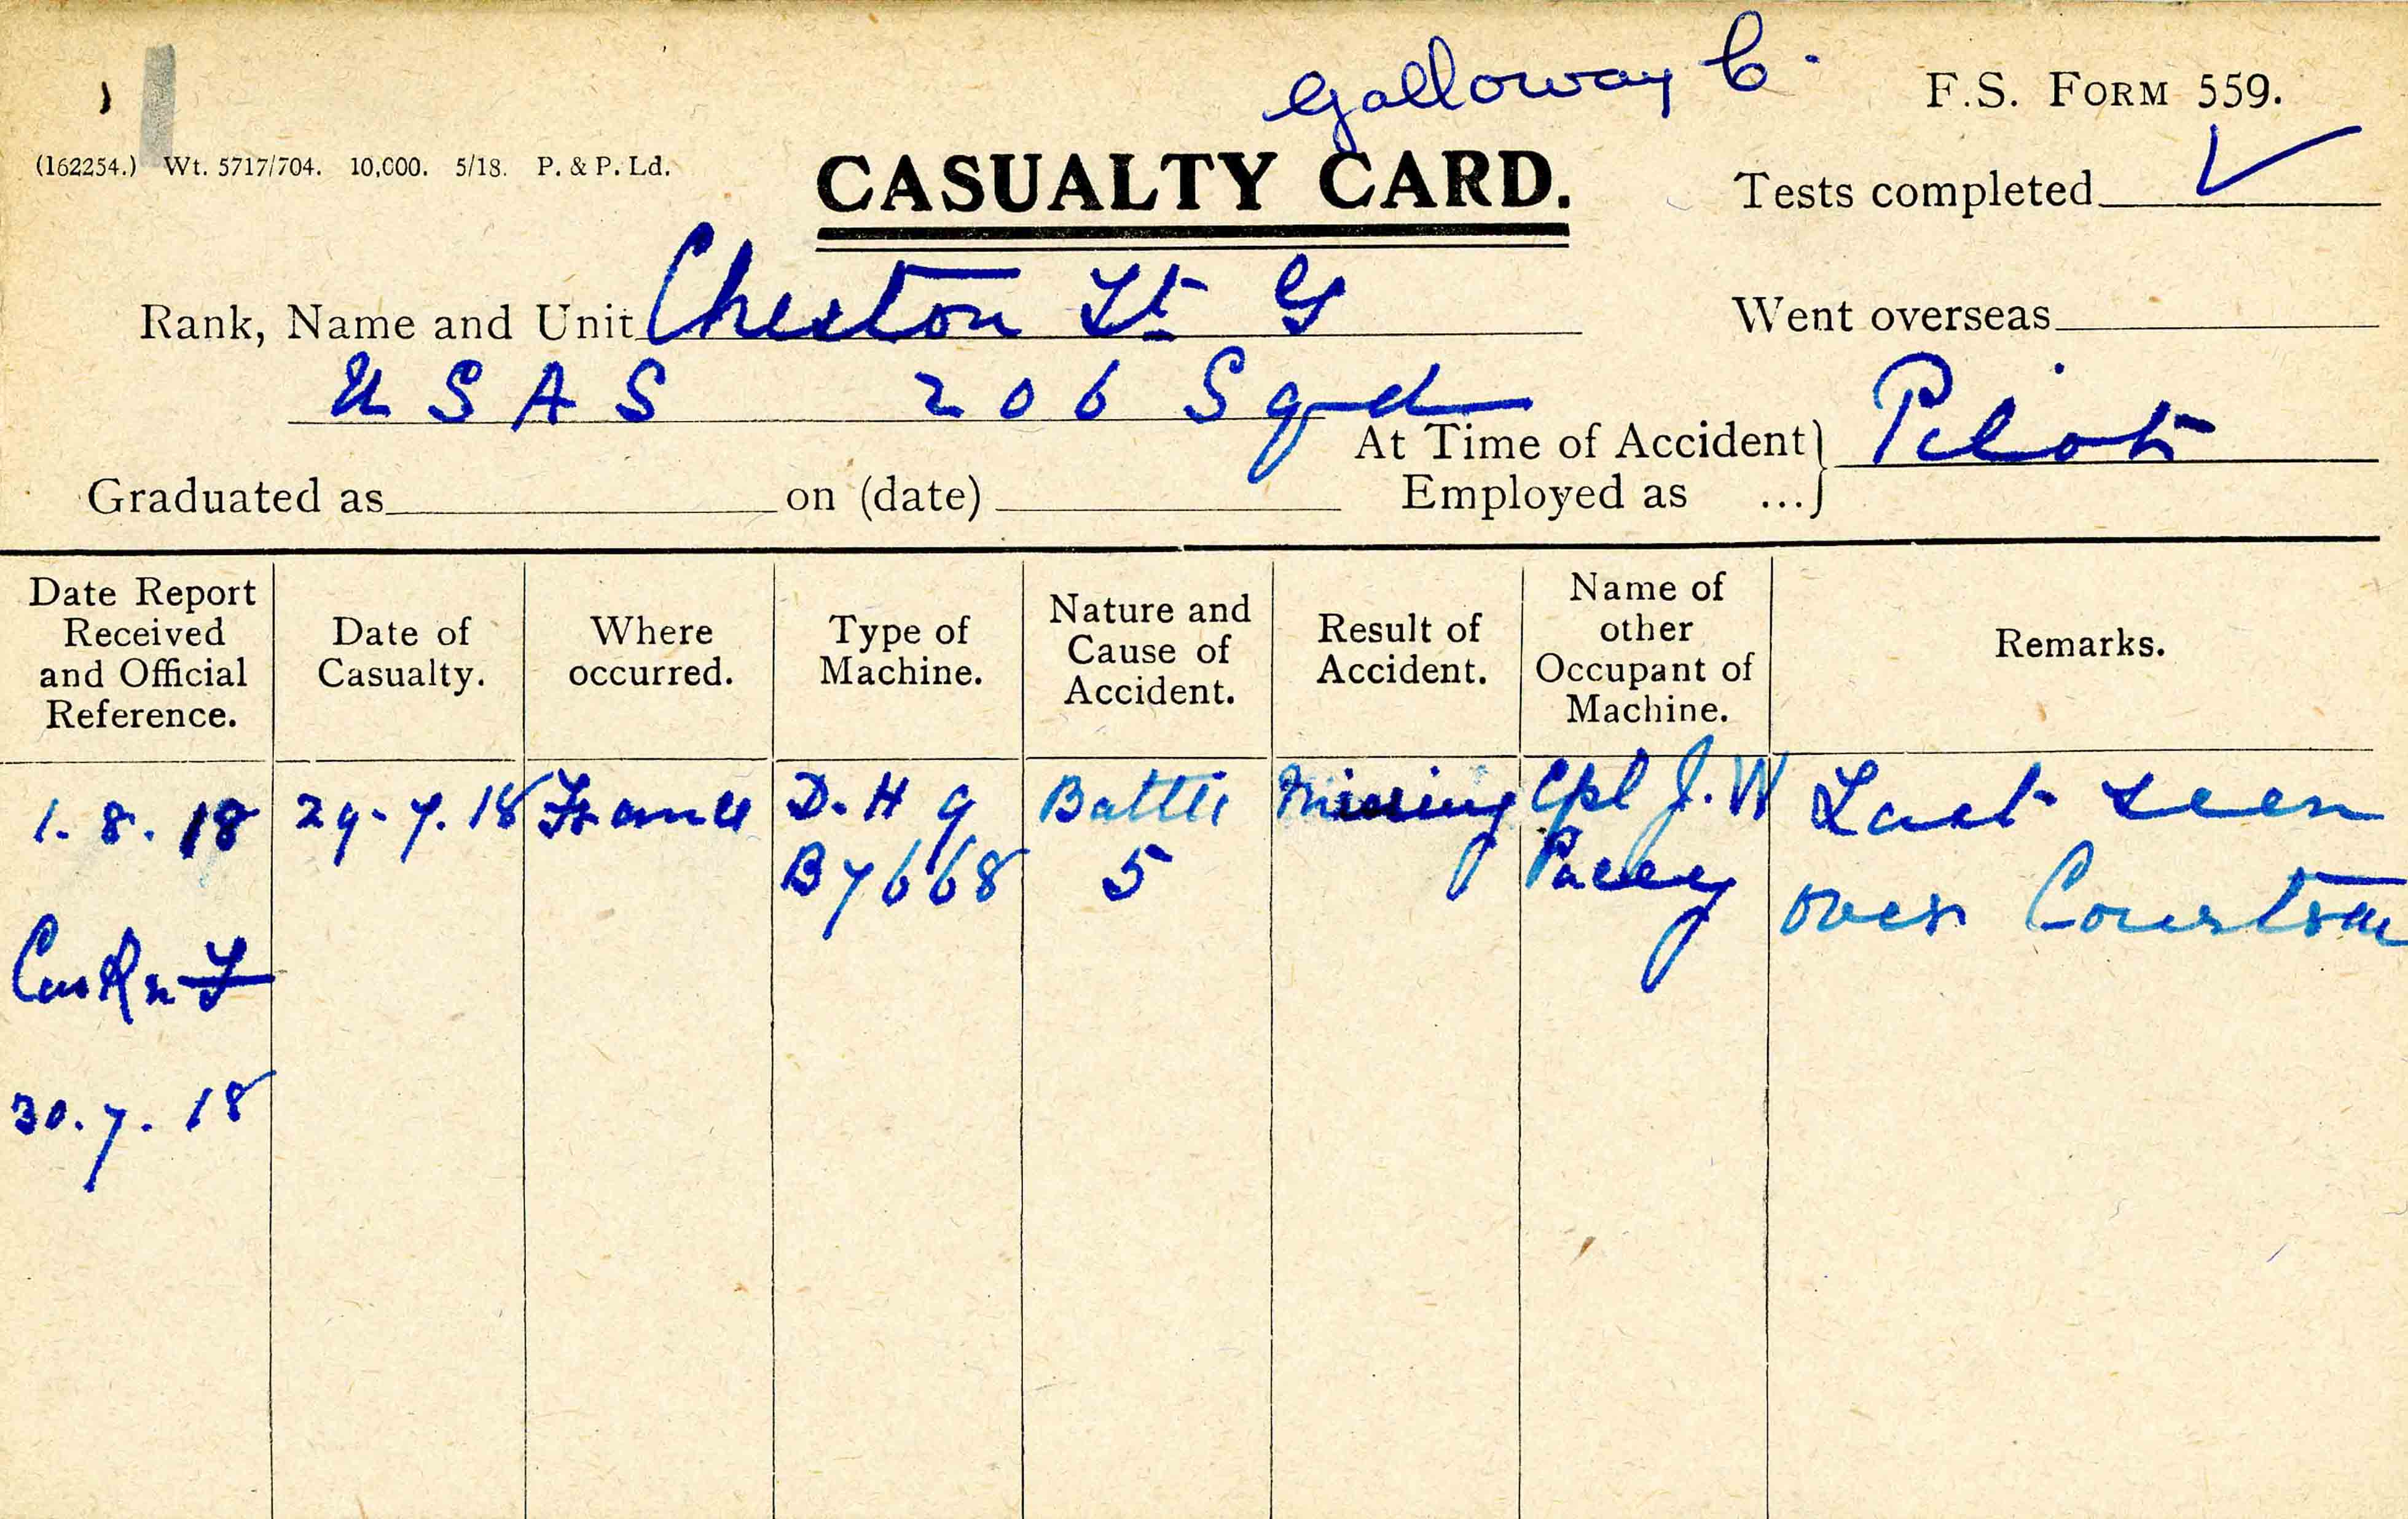 Galloway C.
F.S. FORM 559.
(162254.) Wt. 5717/704. 10,000. 5/18. P. & P. Ld.
CASUALTY CARD.
Tests completed ✓
Rank, Name and Unit Cheston Lt G
Went overseas
U S A S 206 Sqd
At Time of Accident } Pilot
Employed as ...
Graduated as on (date)
Date Report Received and Official Reference.
Date of Casualty.
Where occurred.
Type of Machine.
Nature and Cause of Accident.
Result of Accident.
Name of other Occupant of Machine.
Remarks.
1. 8. 18 29. 7. 18 France D.H 9 Battle Missing Cpl J. W Last seen
B7668 5 Pacey over Courtrai
30. 7. 18